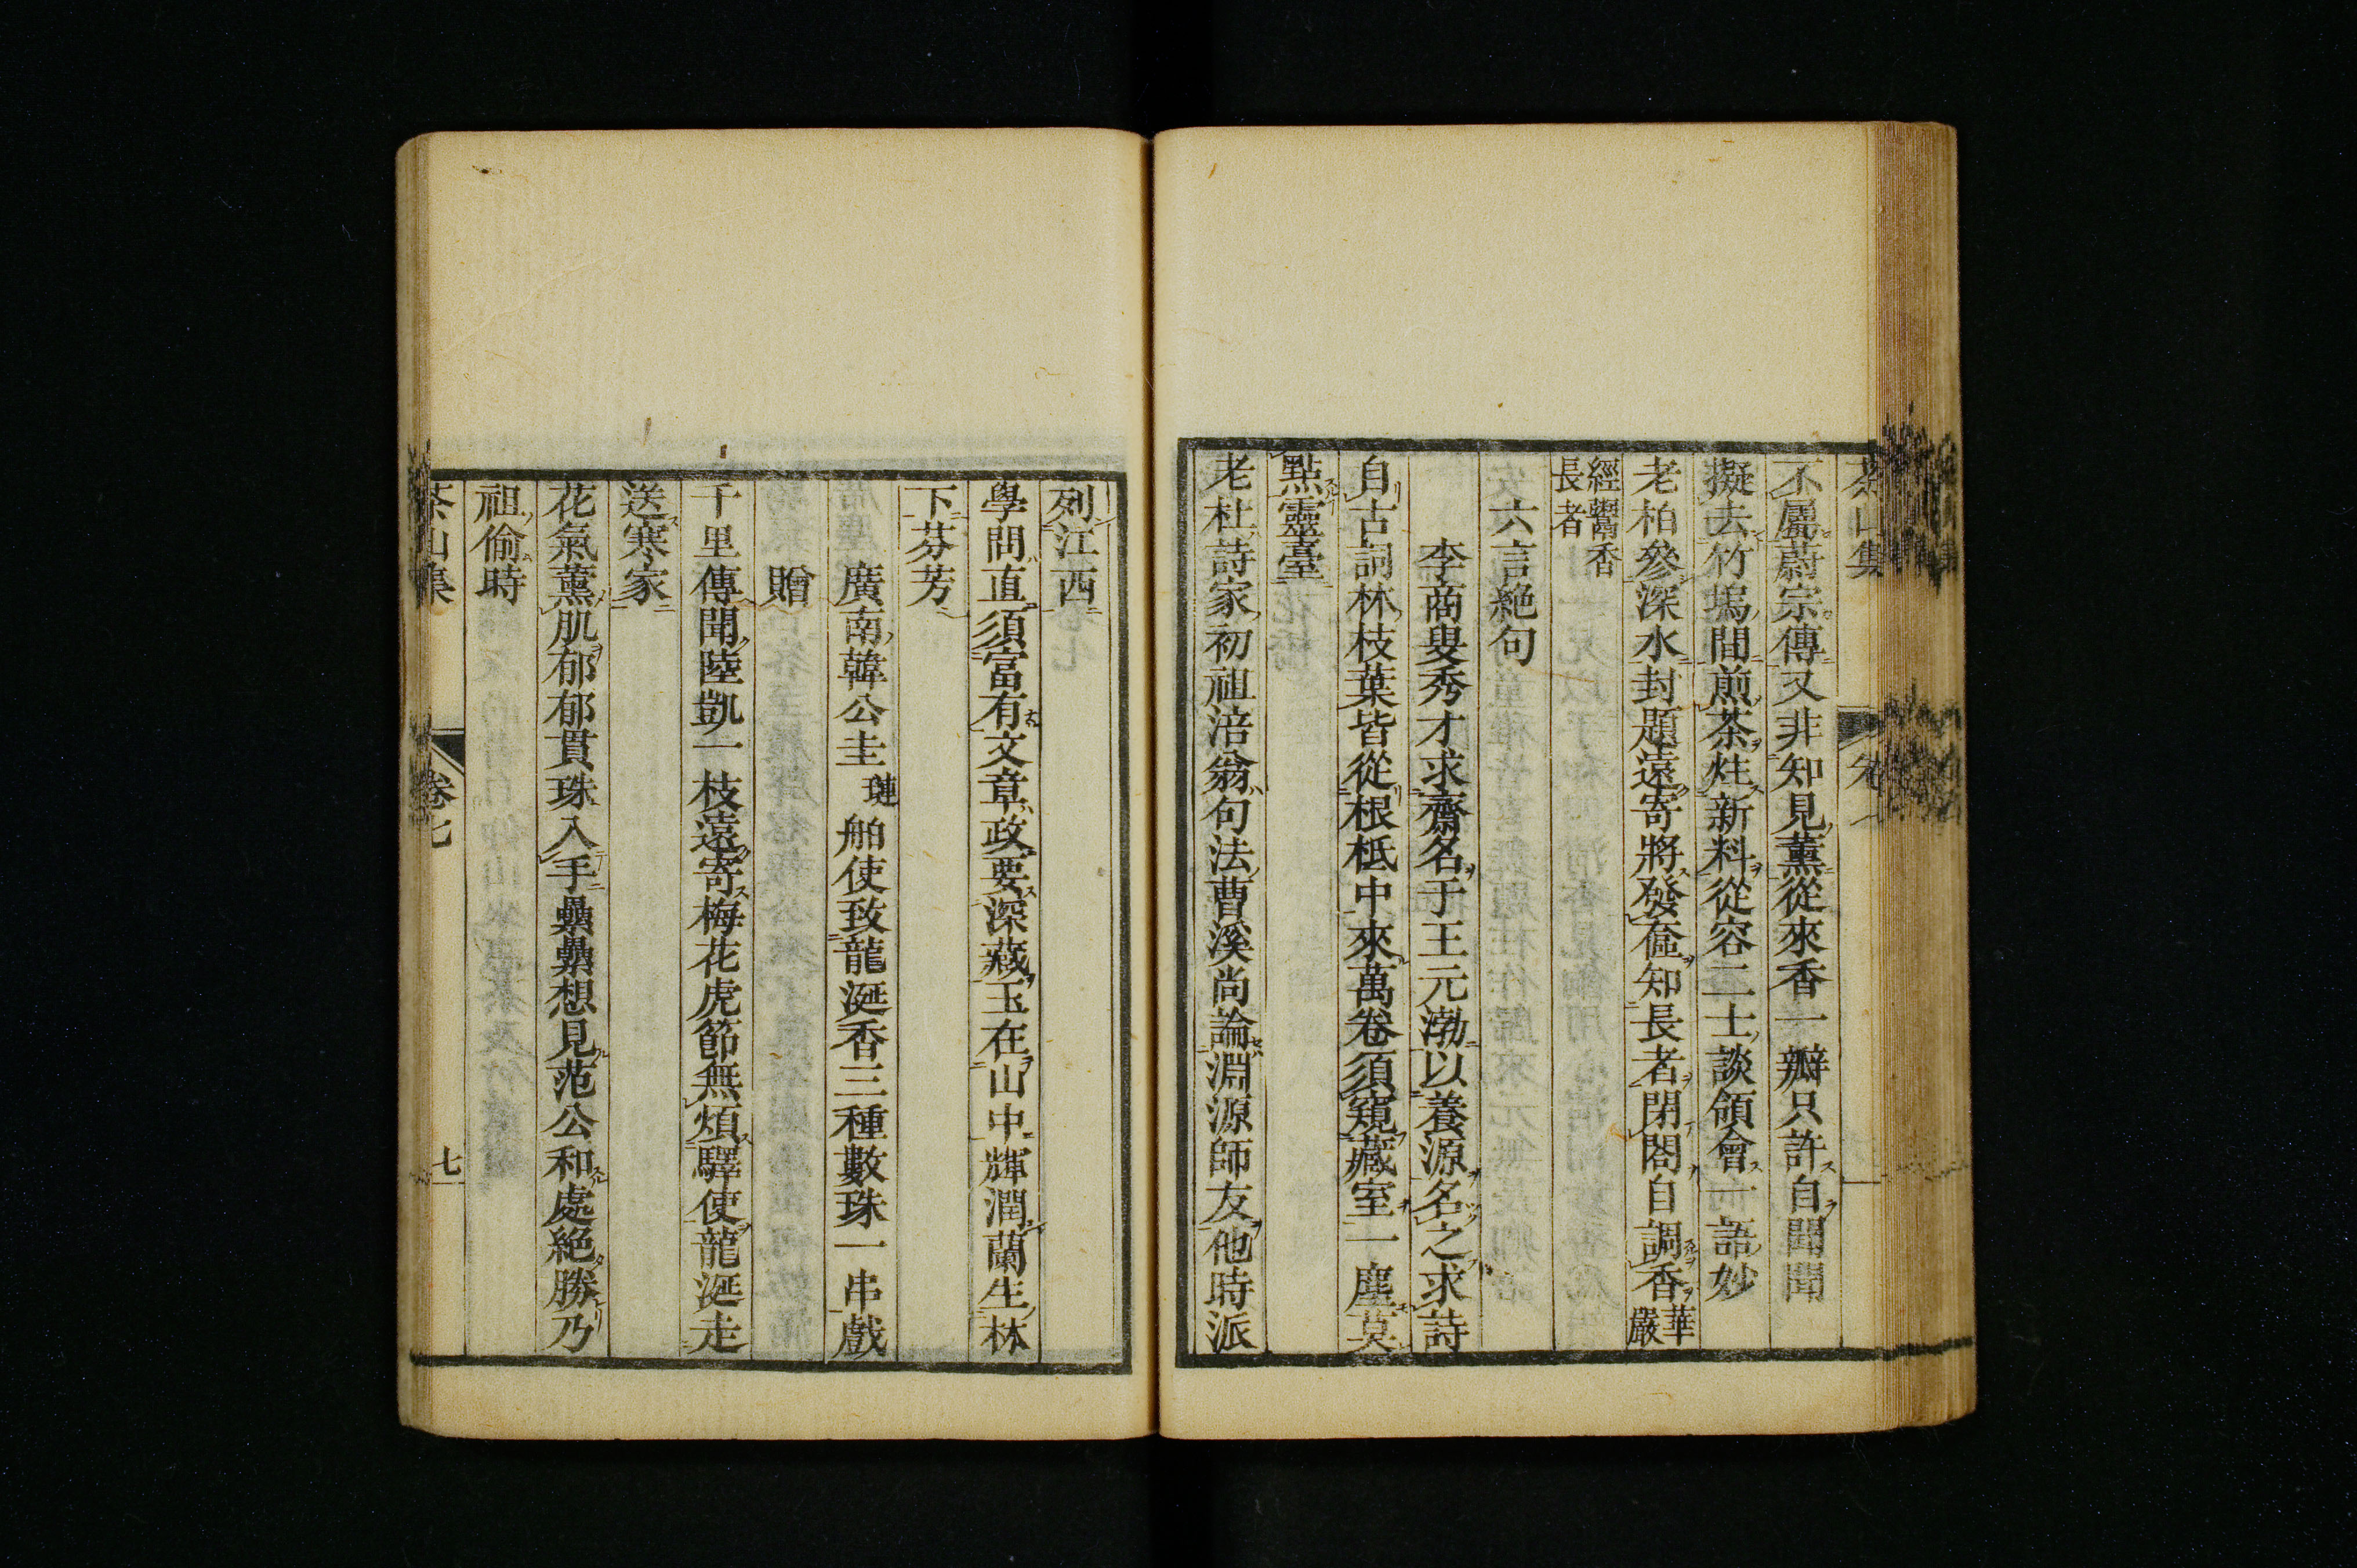 不屬蔚宗傳又非知見薰從來香一瓣只許自聞聞
擬去竹塢間煎茶炷新料從容二士談領會一語妙
老柏參深水封題遠寄將發奩知長者閉閤自調香華嚴
經鬻香長者
六言絶句
李商叟秀才求齋名于王元渤以養源名之求詩
自古詞林枝葉皆從根柢中來萬卷須窺藏室一塵莫
點靈臺
老杜詩家初祖涪翁句法曹溪尚論淵源師友他時派
列江西
學問直須富有文章政要深藏玉在山中輝潤蘭生林
下芬芳
廣南韓公圭璉舶使致龍涎香三種數珠一串戲
贈
千里傳聞陸凱一枝遠寄梅花虎節無煩驛使龍涎走
送寒家
花氣薰肌郁郁貫珠入手纍纍想見范公和處絶勝乃
祖偷時
茶山集 卷七 七